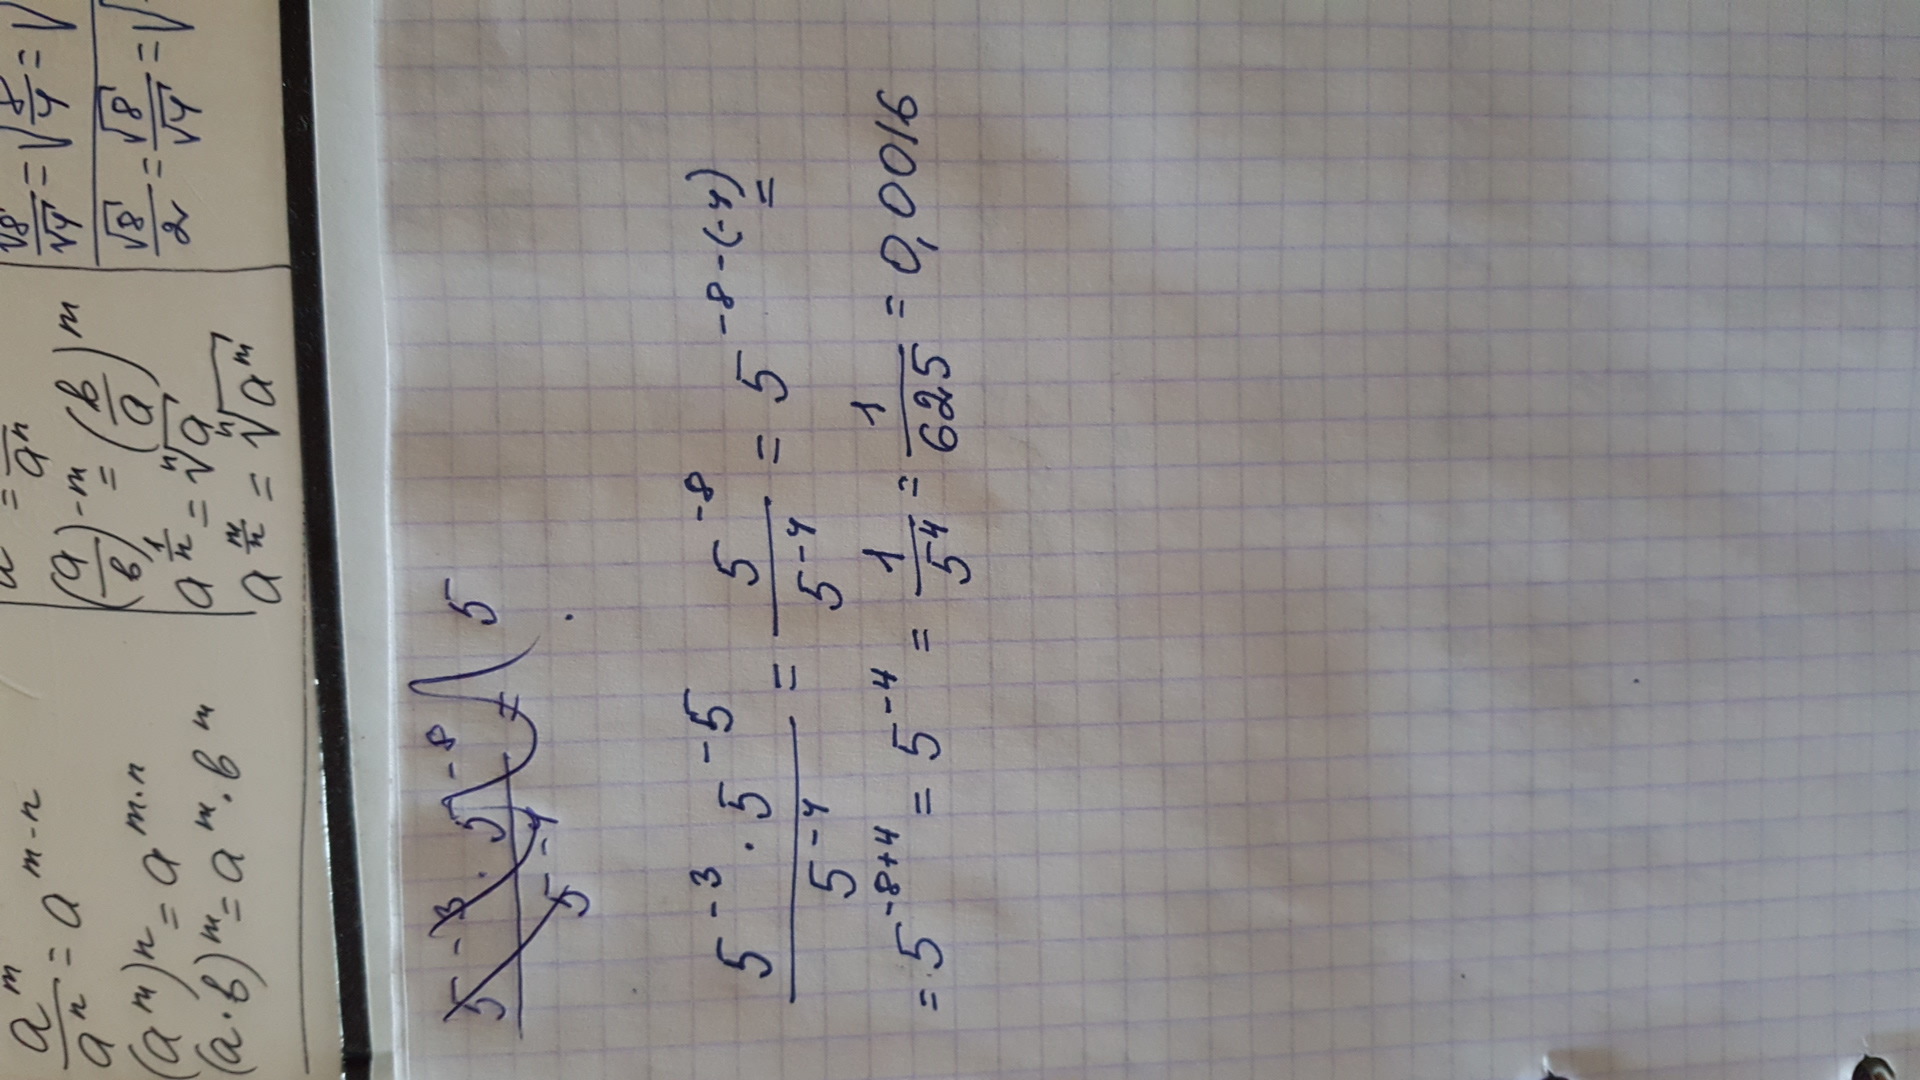 a^m/a^n = a^(m-n)
(a^m)^n = a^(m·n)
(a·b)^m = a^m · b^m
= /a^n
(a/b)^(-m) = (b/a)^m
a^(1/n) = ⁿ√a
a^(m/n) = ⁿ√a^m
√8/√4 = √8/4 = √
√8/2 = √8/√4 = √
5^(-3) · 5^(-8) / 5^(-4) 5
5^(-3) · 5^(-5) / 5^(-4) = 5^(-8) / 5^(-4) = 5^(-8-(-4)) =
= 5^(-8+4) = 5^(-4) = 1/5^4 = 1/625 = 0,0016